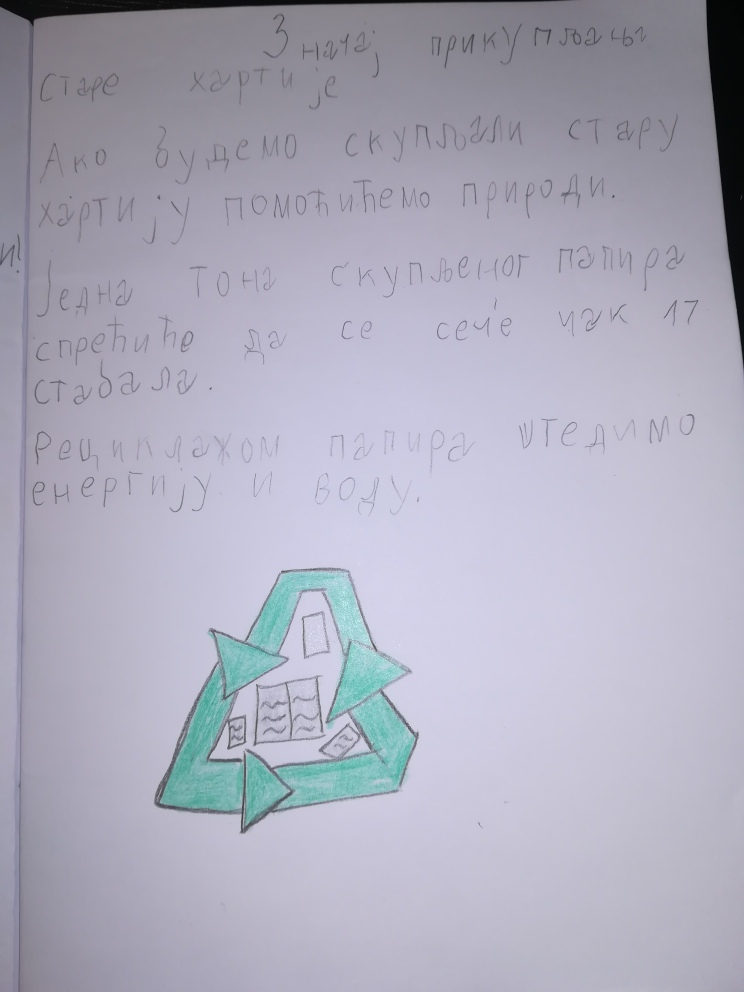 Значај прикупљања
старе хартије
Ако будемо скупљали стару
хартију помоћићемо природи.
Једна тона скупљеног папира
спрећиће да се сече чак 17
стабала.
Рециклажом папира штедимо
енергију и воду.
и!